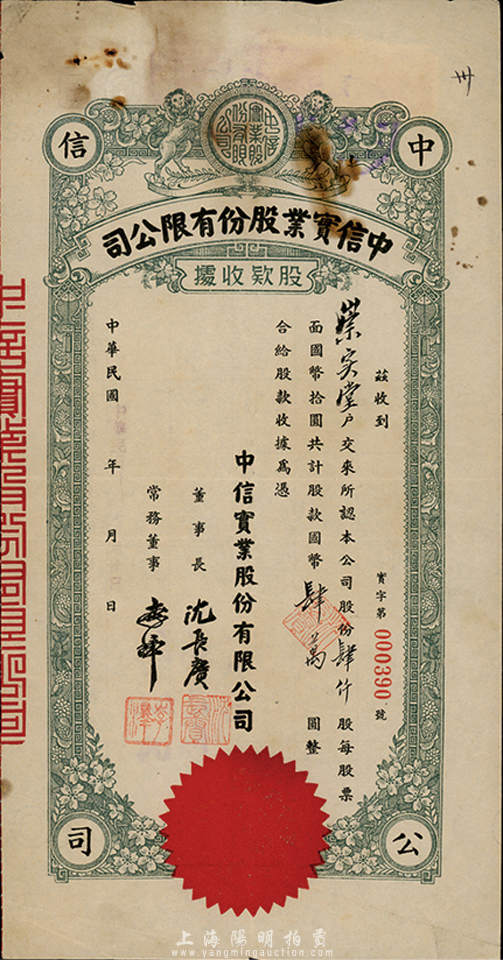 卅
中
信
中信實業股份有限公司
中信實業股份有限公司
股款收據
茲收到
戶交來所認本公司股份肆仟股每股票
面國幣拾圓共計股款國幣肆萬圓整
合給股款收據爲憑
實字第000390號
中信實業股份有限公司
董事長
沈長賡
常務董事
中華民國 年 月 日
公
司
上海陽明拍賣
www.yangmingauction.com